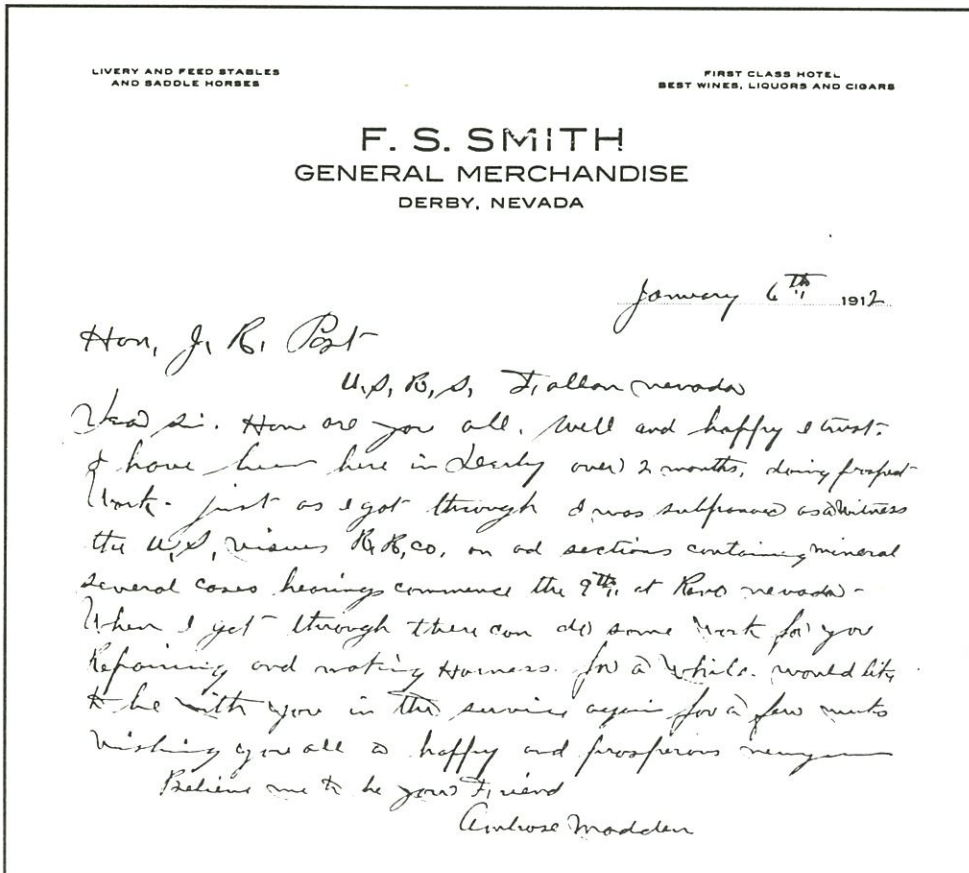 LIVERY AND FEED STABLES
AND SADDLE HORSES
FIRST CLASS HOTEL
BEST WINES, LIQUORS AND CIGARS
F. S. SMITH
GENERAL MERCHANDISE
DERBY, NEVADA
January 6th 1912
Hon, J. R. Post
U.S. R. S, Fallon nevada
Dear Sir. How are you all. Well and happy I trust.
I have been here in Derby over 2 months, doing prospect
Work. just as I got through I was subpoenaed as a Witness
the U.S, versus R.R. co, on od sections containing mineral
several cases hearings commence the 9th at Reno nevada -
When I get through there can do some work for you
Repairing and making Harness. for a while. would like
to be with you in the service again for a few weeks
Wishing you all a happy and prosperous new year
Believe me to be your Friend
Ambrose Madden